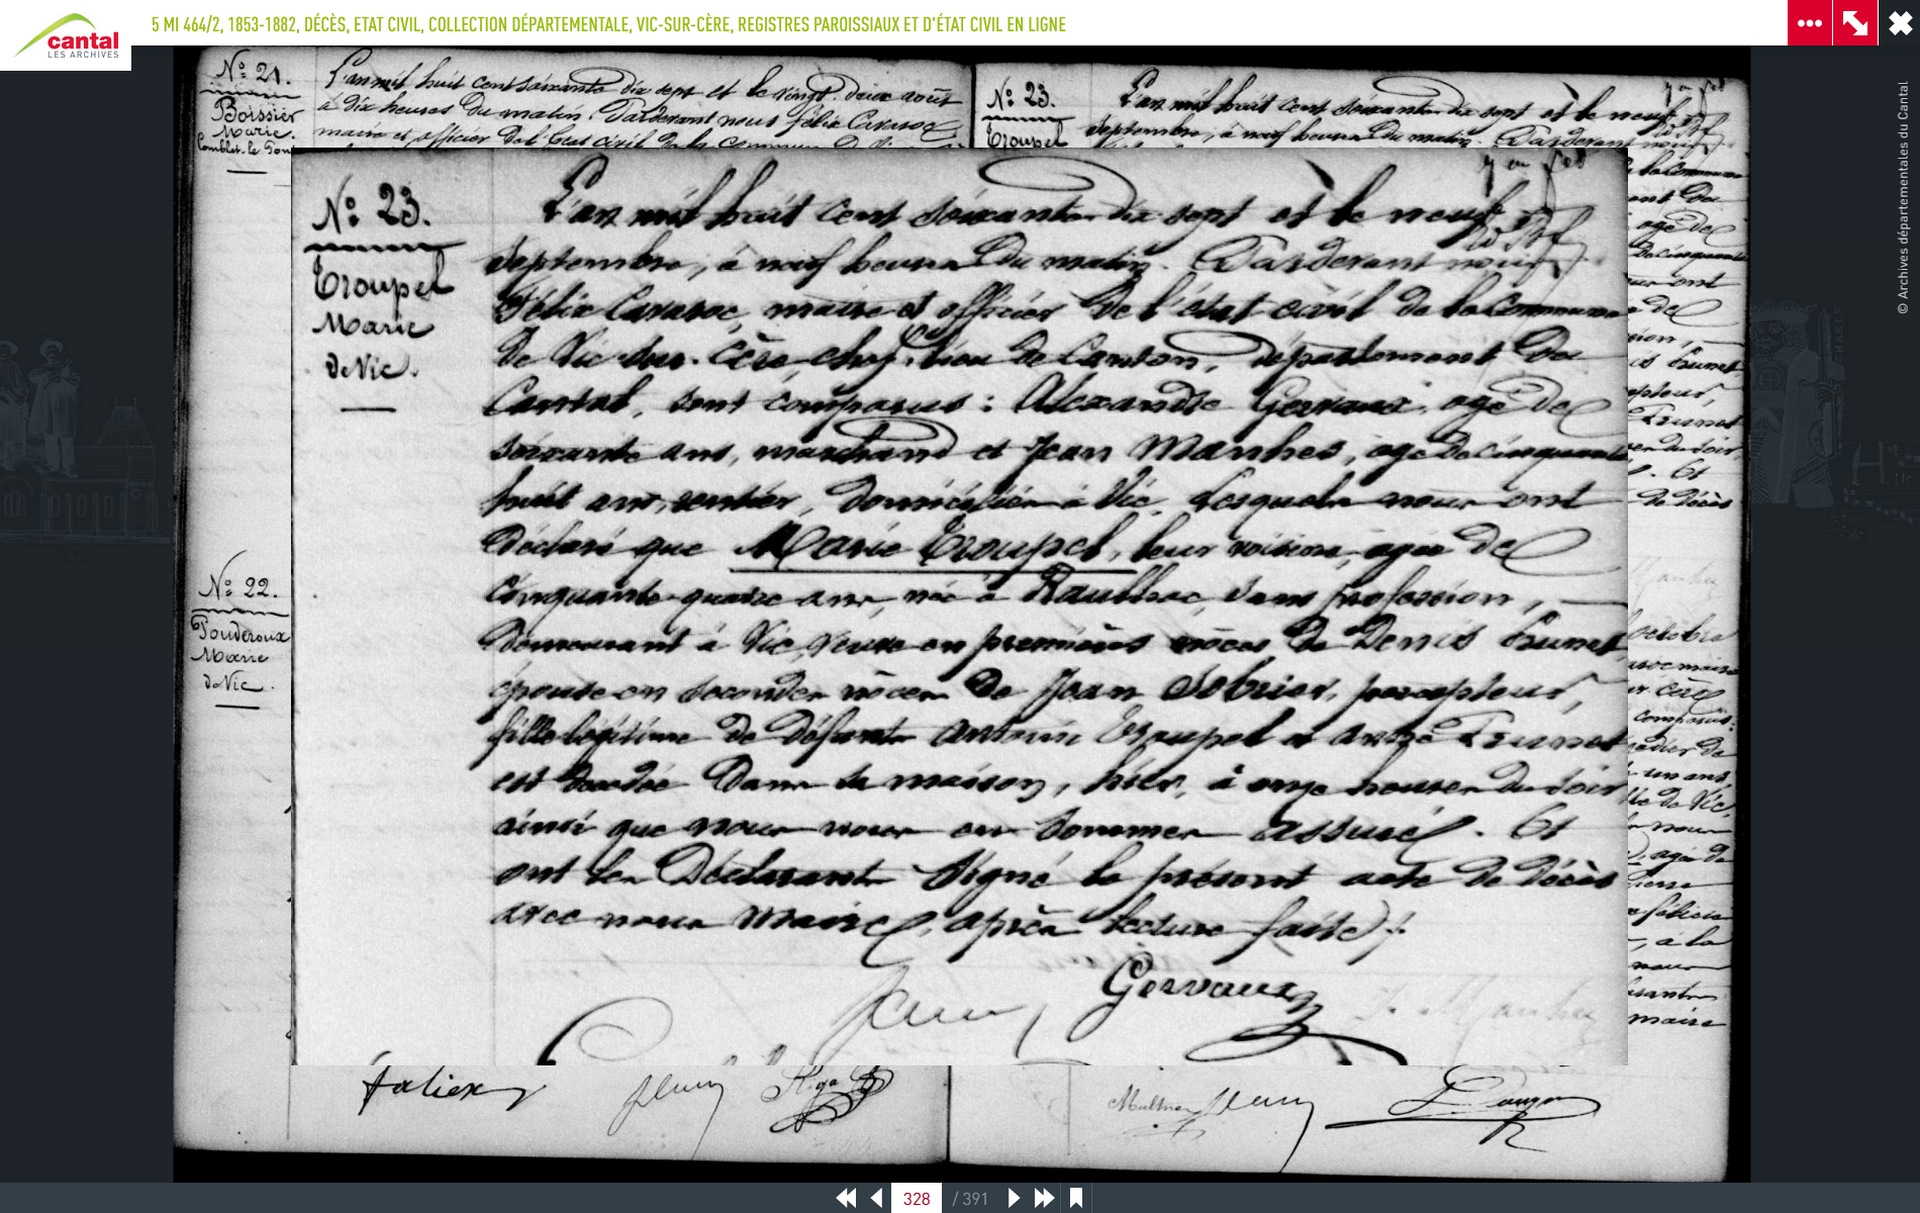 cantal
LES ARCHIVES
5 MI 464/2, 1853-1882, DÉCÈS, ETAT CIVIL, COLLECTION DÉPARTEMENTALE, VIC-SUR-CÈRE, REGISTRES PAROISSIAUX ET D'ÉTAT CIVIL EN LIGNE
© Archives départementales du Cantal
N° 21.
Boissier
Marie.
L'an mil huit cent soixante dix sept et le vingt deux août
à dix heures du matin. Pardevant nous Félix Cavaroc
maire et officier de l'état civil de la commune
N° 22.
Pouderoux
Marie
de Vic.
N° 23.
Troupel
L'an mil huit cent soixante dix sept et le neuf
septembre, à neuf heures du matin. Pardevant nous
N° 23.
Troupel
Marie
de Vic.
L'an mil huit cent soixante dix sept et le neuf
septembre, à neuf heures du matin. Pardevant nous
Félix Cavaroc, maire et officier de l'état civil de la Commune
de Vic-sur-Cère, chef-lieu de Canton, département du
Cantal, sont comparus : Alexandre Gervaux, agé de
soixante ans, marchand et Jean Manhes, agé de cinquante
huit ans, rentier, domiciliés à Vic, lesquels nous ont
déclaré que Marie Troupel, leur voisine, agée de
cinquante-quatre ans, née à Raulhac, sans profession,
demeurant à Vic, veuve en premières nôces de Denis Brunet
épouse en secondes nôces de Jean Sobrier, percepteur,
fille légitime de défunts Antoine Troupel et
est décédée dans sa maison, hier, à onze heures du soir
ainsi que nous nous en sommes assuré. Et
ont les Déclarants signé le présent acte de décès
avec nous Maire, après lecture faite
Gervaux
J. Manhes
328 / 391